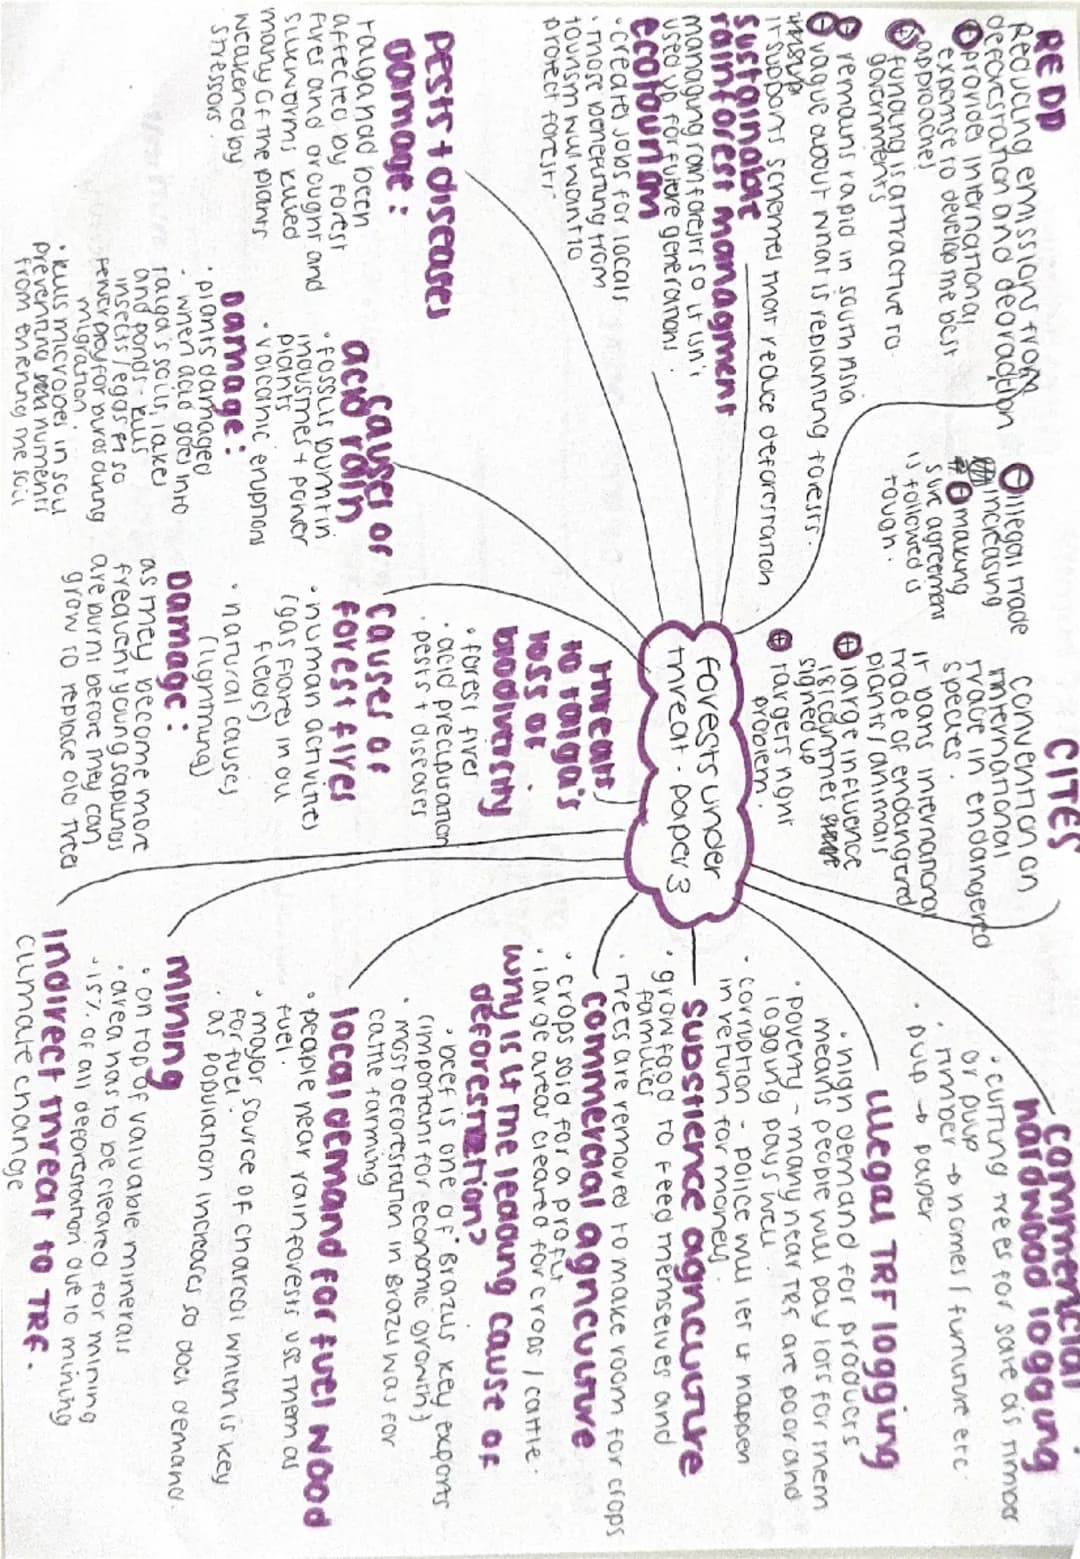 forests under
threat - paper 3
REDD
Reducing emissions from
deforestation and degradation
+ provides international
expertise to develop the best
approaches
+ funding is attractive to
governments
- remains rapid in south Asia
- vague about what is replanting forests.
it supports schemes that reduce deforestation
sustainable
rainforest managment
managing rainforests so it isn't
used up for future generations
ecotourism
· creates jobs for locals
· those benefitting from
tourism will want to
protect forests
pests + diseases
Damage:
taiga had been
affected by forest
fires and drought and
silkworms killed
many of the plants
weakened by
stressors.
causes of
acid rain
· fossils burnt in
industries + power
plants
· volcanic eruptions
Damage:
· plants damaged
· when acid goes into
taiga's soils, lakes
and ponds - kills
insects/eggs so
fewer prey for birds during
migration.
· kills microbes in soil
preventing nutrients
from entering the soil
causes of
forest fires
· human activites
(gas flares in oil
fields)
· natural causes
(lightning)
Damage:
as they become more
frequent young saplings
are burnt before they can
grow to replace old trees
threats
to taiga's
loss of
biodiversity
· forest fires
· acid precipitation
· pests + diseases
CITES
convention on
international
trade in endangered
species.
it bans international
trade of endangered
plants/animals
+ large influence
181 countries
signed up
+ targets right
problem.
- illegal trade
increasing
- making
sure agreement
is followed is
tough.
commercial
hardwood logging
· cutting trees for sale as timber
or pulp
· timber → homes/furniture etc.
· pulp → paper
illegal TRF logging
· high demand for products
means people will pay lots for them
· poverty - many near TRFs are poor and
logging pays well
· corruption - police will let it happen
in return for money.
subsitence agriculture
· grow food to feed themselves and
families
commercial agriculture
· trees are removed to make room for crops
· crops sold for a profit
· large areas cleared for crops/cattle.
why is it the leading cause of
deforestation?
· beef is one of Brazils key exports
(important for economic growth)
· most deforestation in Brazil was for
cattle farming
local demand for fuel wood
· people near rainforests use them as
fuel.
· major source of charcoal which is key
for fuel.
· as population increases so does demand.
mining
· on top of valuable minerals
· area has to be cleared for mining
· 15% of all deforestation due to mining
Indirect threat to TRF.
climate change